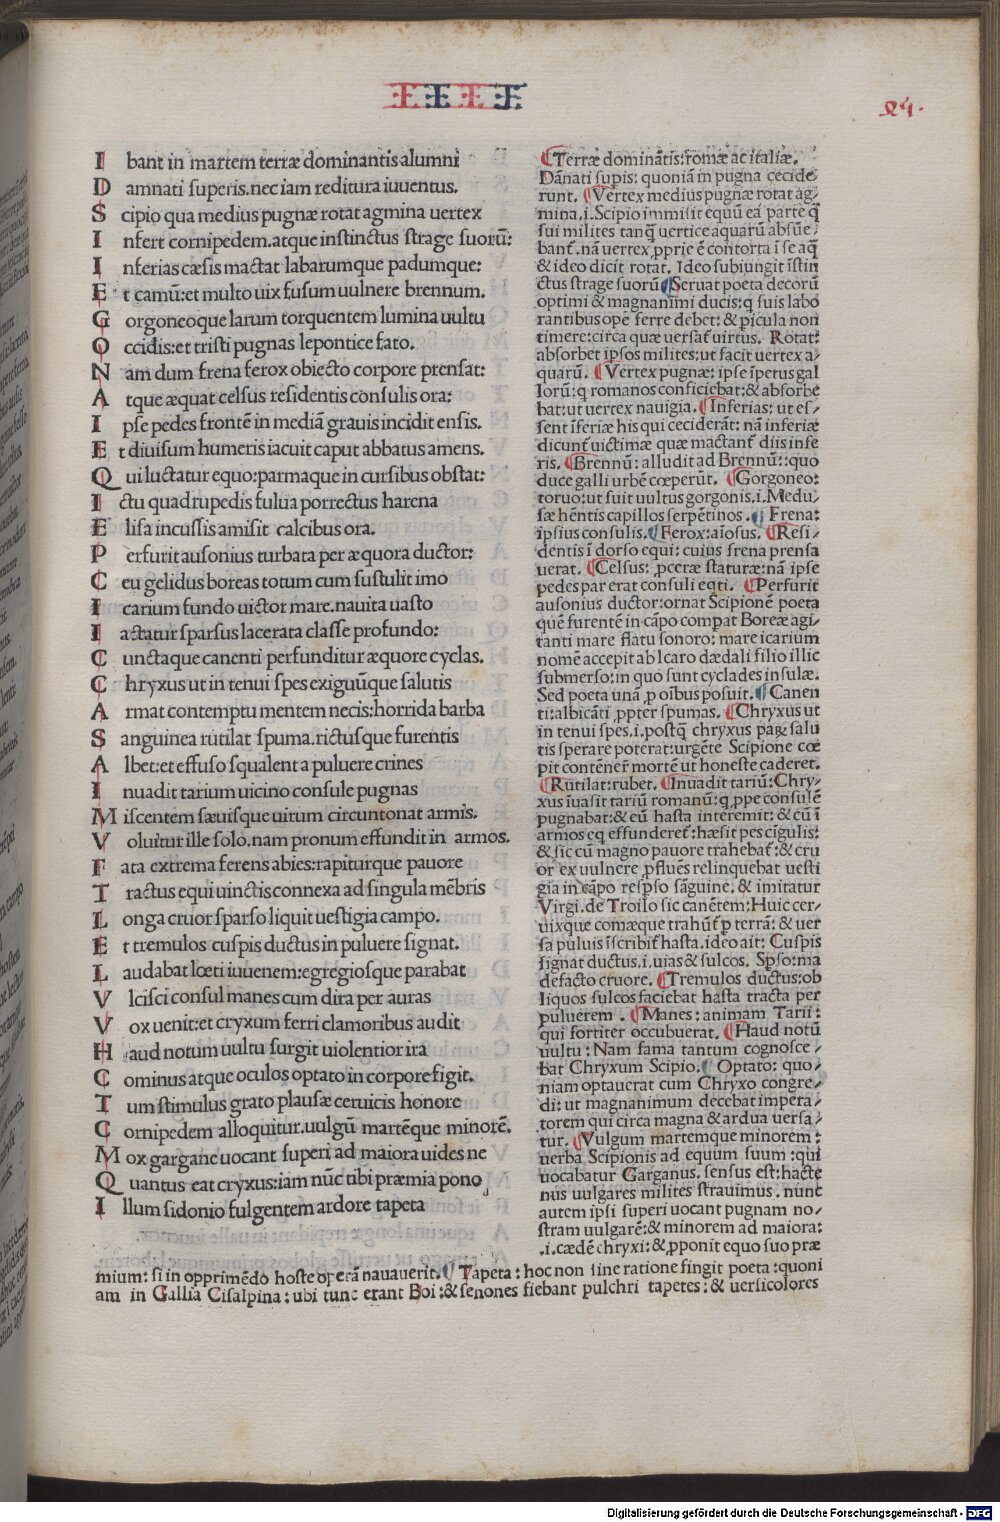 IIII
24.
I bant in martem terræ dominantis alumni
D amnati superis.nec iam reditura iuuentus.
S cipio qua medius pugnæ rotat agmina uertex
I nfert cornipedem.atque instinctus strage suorū:
I nferias cæsis mactat labarumque padumque:
E t camū:et multo uix fusum uulnere brennum.
G orgoneoque larum torquentem lumina uultu
O ccidis:et tristi pugnas lepontice fato.
N am dum frena ferox obiecto corpore prensat:
A tque æquat celsus residentis consulis ora:
I pse pedes frontē in mediā grauis incidit ensis.
E t diuisum humeris iacuit caput abbatus amens.
Q ui luctatur equo:parmaque in cursibus obstat:
I ctu quadrupedis fulua porrectus harena
E lisa incussis amisit calcibus ora.
P erfurit ausonius turbata per æquora ductor:
C eu gelidus boreas totum cum sustulit imo
I carium fundo uictor mare.nauita uasto
I actatur sparsus lacerata classe profundo:
C unctaque canenti perfunditur æquore cyclas.
C hryxus ut in tenui spes exiguūque salutis
A rmat contemptu mentem necis:horrida barba
S anguinea rutilat spuma.rictusque furentis
A lbet:et effuso squalent a puluere crines
I nuadit tarium uicino consule pugnas
M iscentem sæuisque uirum circuntonat armis.
V oluitur ille solo.nam pronum effundit in armos.
F ata extrema ferens abies:rapiturque pauore
T ractus equi uinctis connexa ad singula mēbris
L onga cruor sparso liquit uestigia campo.
E t tremulos cuspis ductus in puluere signat.
L audabat lœti iuuenem:egregiosque parabat
V lcisci consul manes cum dira per auras
V ox uenit:et cryxum ferri clamoribus audit
H aud notum uultu surgit uiolentior ira
C ominus atque oculos optato in corpore figit.
T um stimulus grato plausæ ceruicis honore
C ornipedem alloquitur.uulgū martēque minorē.
M ox gargane uocant superi ad maiora uides ne
Q uantus eat cryxus:iam nūc tibi præmia pono
I llum sidonio fulgentem ardore tapeta
¶Terræ dominātis:romæ ac italiæ.
Dānati supis: quoniā in pugna cecide
runt. ¶Vertex medius pugnæ rotat ag-
mina.i.Scipio immisit equū ea parte q̄
sui milites tanq̄ uertice aquarū absūe/
banť.nā uertex ꝓprie ē contorta ī se aq̄
& ideo dicit rotat. Ideo subiungit īstin
ctus strage suorū ¶Seruat poeta decorū
optimi & magnanimi ducis:q̄ suis labo
rantibus opē ferre debet: & picula non
timere:circa quæ uersať uirtus. Rotat:
absorbet ipsos milites:ut facit uertex a/
quarū. ¶Vertex pugnæ: ipse īpetus gal
lorū:q romanos conficiebat:& absorbe
bat:ut uertex nauigia. ¶Inferias: ut es/
sent īferiæ his qui ceciderāt: nā inferiæ
dicunť uictimæ quæ mactanť diis infe
ris. ¶Brennū: alludit ad Brennū::quo
duce galli urbē cœperūt. ¶Gorgoneo:
toruo:ut fuit uultus gorgonis.i.Medu/
sæ hēntis capillos serpētinos. ¶ Frena:
ipsius consulis. ¶Ferox:aīosus. ¶Resi/
dentis ī dorso equi: cuius frena prensa
uerat. ¶Celsus: ꝓceræ staturæ:nā ipse
pedes par erat consuli eq̄ti. ¶Perfurit
ausonius ductor:ornat Scipionē poeta
quē furentē in cāpo compat Boreæ agi/
tanti mare flatu sonoro: mare icarium
nomē accepit ab Icaro dædali filio illic
submerso: in quo sunt cyclades insulæ.
Sed poeta unā ꝓ oībus posuit. ¶Canen
ti:albicāti ꝓpter spumas. ¶Chryxus ut
in tenui spes.i.postq̄ chryxus paꝝ salu
tis sperare poterat:urgēte Scipione cœ
pit contēnere mortē ut honeste caderet.
¶Rutilat:rubet. ¶Inuadit tariū: Chry/
xus īuasit tariū romanū:q ꝓpe consulē
pugnabat:& eū hasta interemit: & cū ī
armos eq effunderet:hæsit pes cīgulis:
& sic cū magno pauore trahebať:& cru
or ex uulnere ꝓfluēs relinquebat uesti
gia in cāpo respso sāguine. & imitatur
Virgi.de Troilo sic canētem:Huic cer/
uixque comæque trahūť p terrā: & uer
sa puluis īscribiť hasta.ideo ait: Cuspis
signat ductus.i.uias & sulcos. Spso:ma
defacto cruore. ¶Tremulos ductus:ob
liquos sulcos faciebat hasta tracta per
puluerem . ¶Manes: animam Tarii:
qui fortiter occubuerat. ¶Haud notū
uultu: Nam fama tantum cognosce/
bat Chryxum Scipio. ¶ Optato: quo/
niam optauerat cum Chryxo congre/
di: ut magnanimum decebat impera/
torem qui circa magna & ardua uersa/
tur. ¶Vulgum martemque minorem:
uerba Scipionis ad equum suum :qui
uocabatur Garganus. sensus est:hacte
nus uulgares milites strauimus. nunc
autem ipsi superi uocant pugnam no/
stram uulgarē:& minorem ad maiora:
.i.cædē chryxi:& ꝓponit equo suo præ
mium: si in opprimēdo hoste operā nauauerit. ¶ Tapeta : hoc non sine ratione fingit poeta :quoni
am in Gallia Cisalpina : ubi tunc erant Boi :& senones fiebant pulchri tapetes : & uersicolores
Digitalisierung gefördert durch die Deutsche Forschungsgemeinschaft - DFG